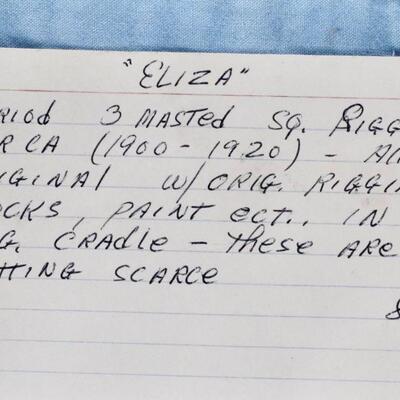 "ELIZA"
RIOD 3 MASTED SQ. RIGG
RCA (1900 - 1920) - A
IGINAL W/ ORIG. RIGGIN
OCKS, PAINT ECT.. IN
G. CRADLE - THESE ARE
TTING SCARCE